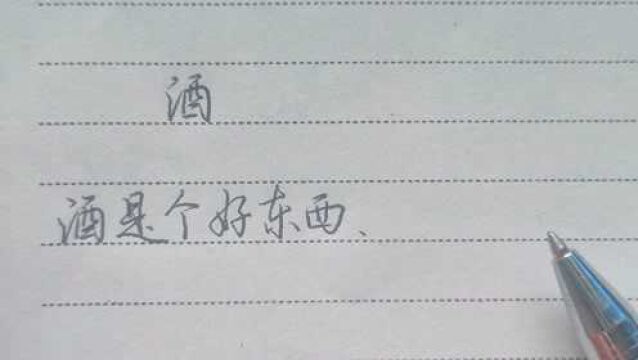 酒
酒是个好东西、